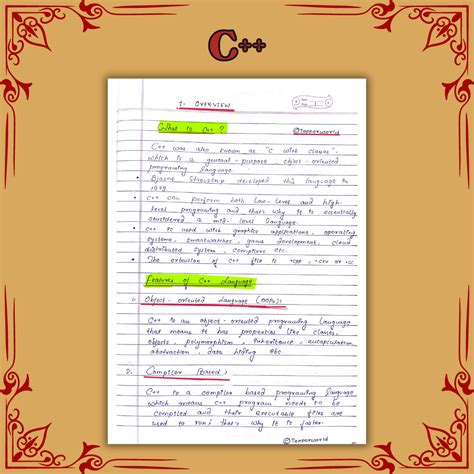 C++
1. OVERVIEW
What is C++ ?
©Topperworld
C++ was also known as "C with classes"
which is a general-purpose, object-oriented
programing language.
• Bjarne Stroustrup developed this language in
1979
• C++ can perform both low-level and high-
level programing and that's why it is essentially
considered a mid-level language.
• C++ is used with graphics applications, operating
systems, game development, cloud
distributed system, compilers etc.
• The extension of C++ file is .cpp, .cxx or .cc
Features of C++ Language
1. Object-oriented Language (OOPs):
C++ is an object-oriented programing language
that means it has properties like classes,
objects, polymorphism, inheritance, encapsulation,
abstraction, data hiding etc.
2. Compiler Based:
C++ is a compiler based programing language
which means C++ program needs to be
compiled and their executable files are
used to run; that's why it is faster.
©Topperworld